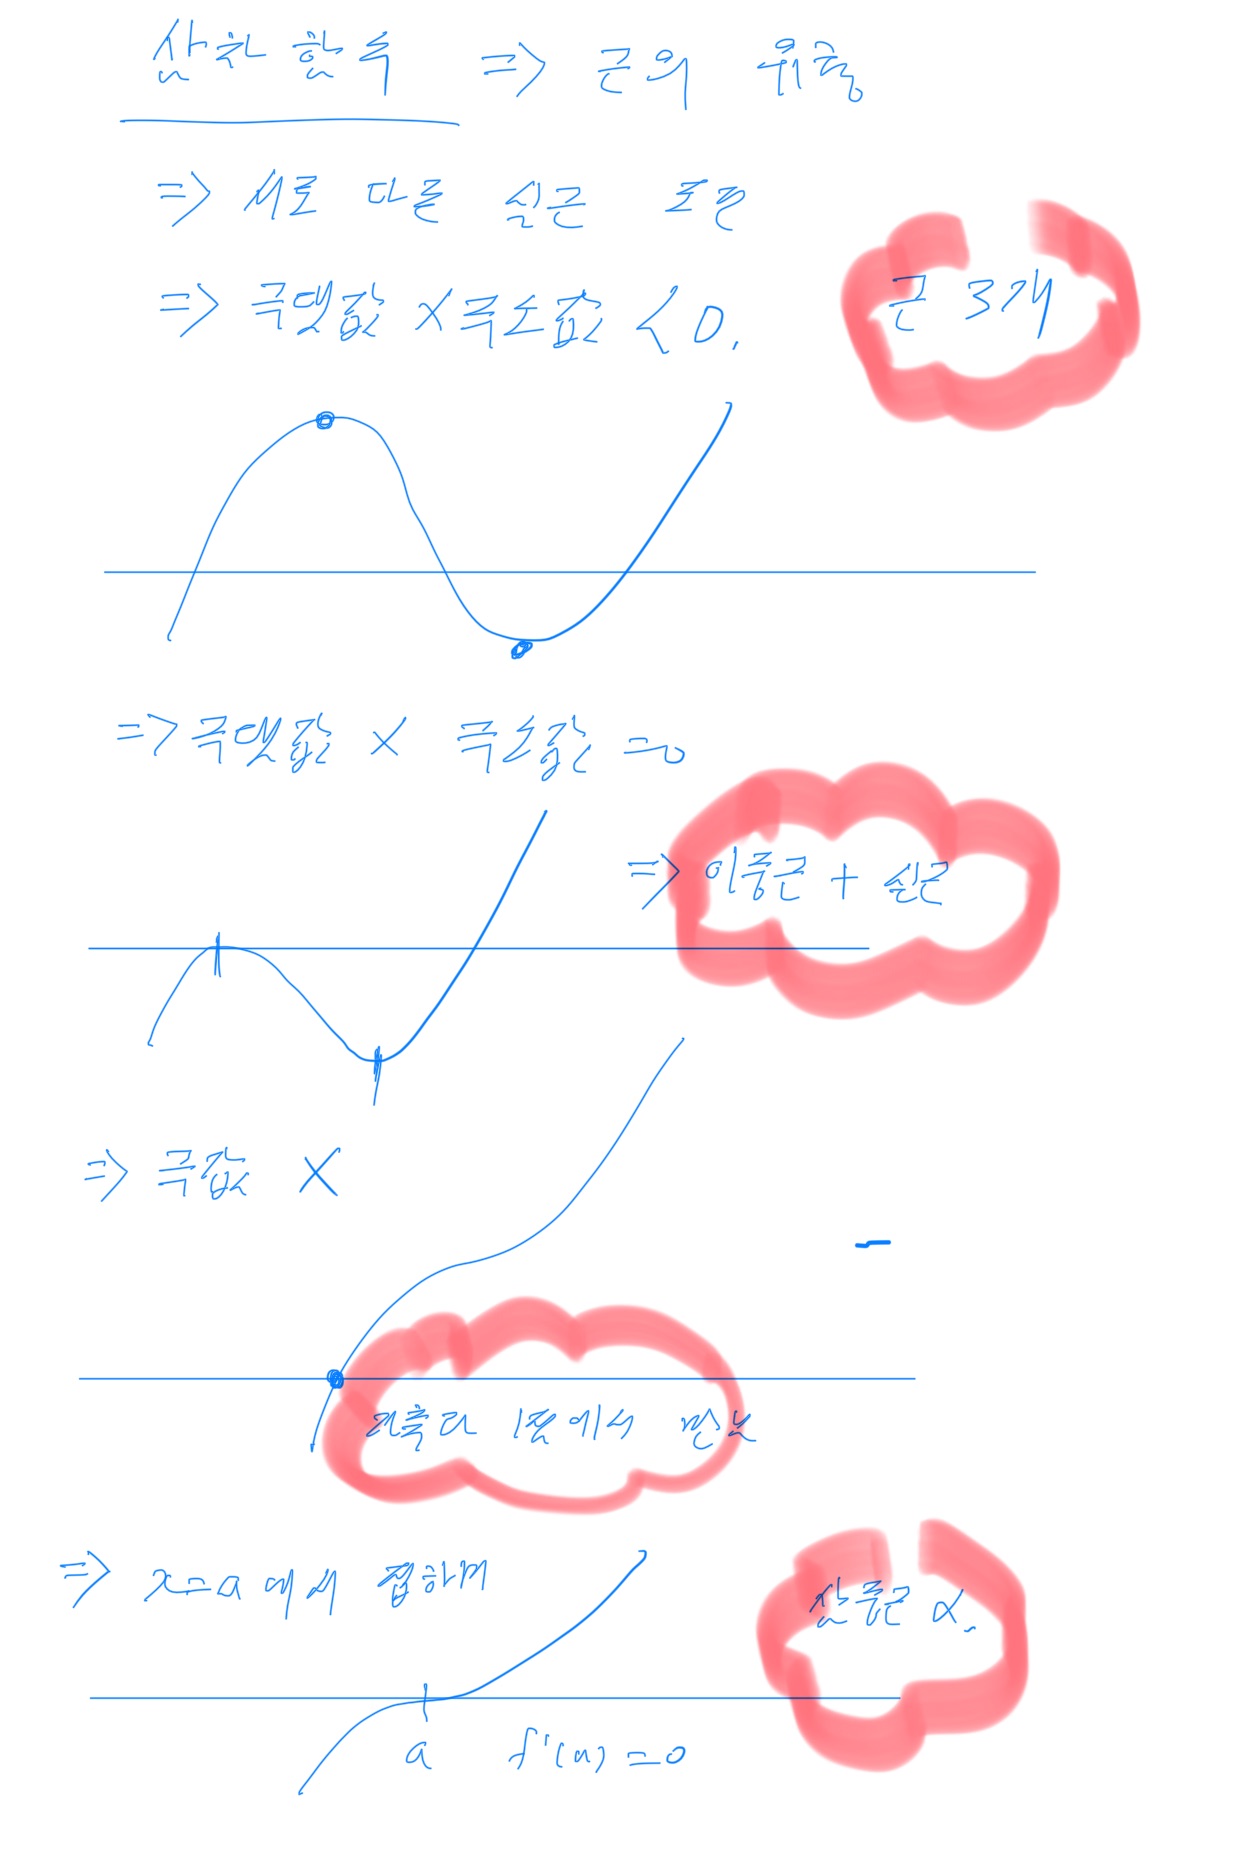 삼차 함수 => 근의 위충
=> 서로 다른 실근 조건
=> 극댓값 X 극소값 < 0.
근 3개
=> 극댓값 X 극소값 = 0
=> 이중근 + 실근
=> 극값 X
x축과 1점에서 만남
=> x=a에서 접하며
삼중근 α.
a f'(a) = 0